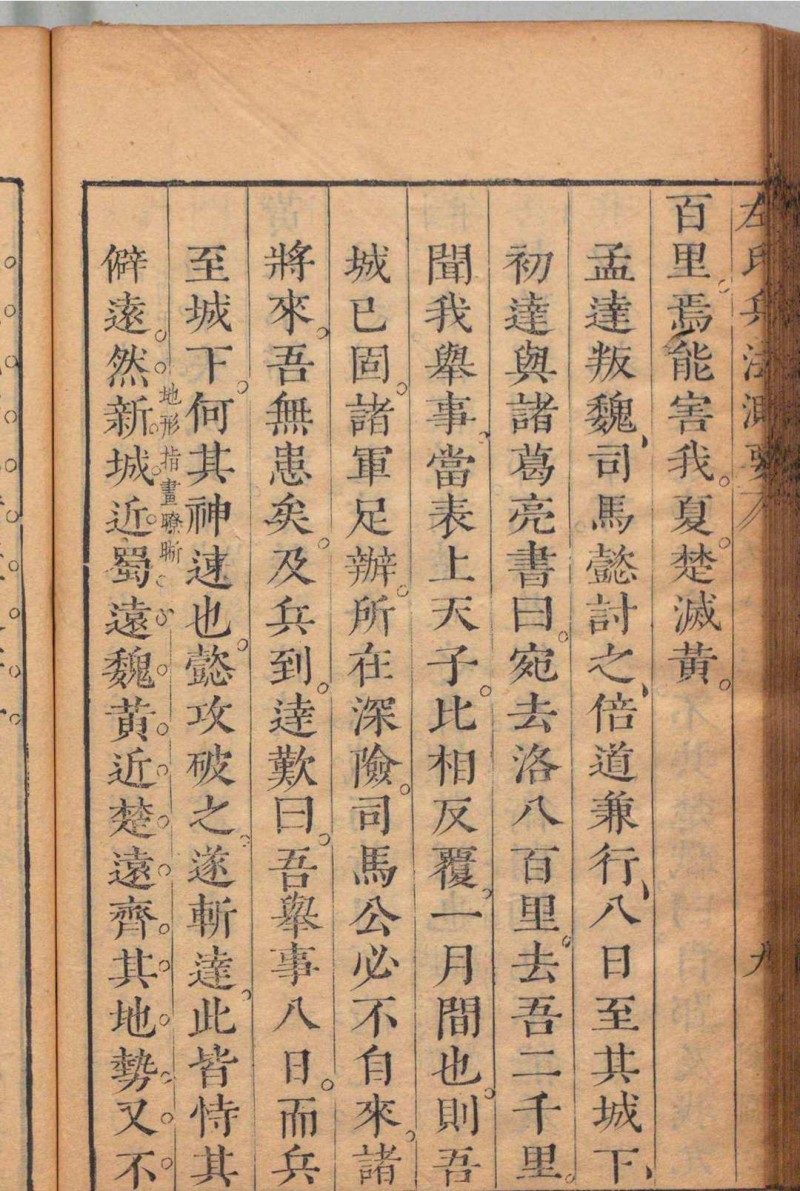 左氏兵法測要
百里。焉能害我。夏。楚滅黃。
孟達叛魏、司馬懿討之、倍道兼行、八日至其城下、
初達與諸葛亮書曰。宛去洛八百里。去吾二千里。
聞我舉事。當表上天子。比相反覆。一月間也。則吾
城已固。諸軍足辦。所在深險。司馬公必不自來。諸
將來。吾無患矣。及兵到。達歎曰。吾舉事八日。而兵
至城下。何其神速也。懿攻破之。遂斬達。此皆恃其
地形指畫瞭晰
僻遠。然新城近蜀遠魏。黃近楚遠齊。其地勢又不